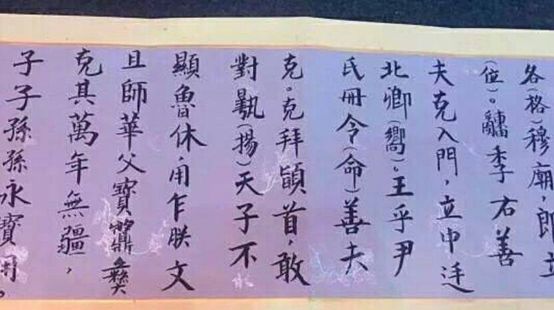 各(格)穆廟,即立
(位)。季右善
夫克入門,立中廷
北鄉(嚮)。王乎尹
氏冊令(命)善夫
克。克拜首,敢
對(揚)天子不
顯魯休,用乍朕文
且師華父寶彝
克其萬年無疆,
子子孫孫永寶用。